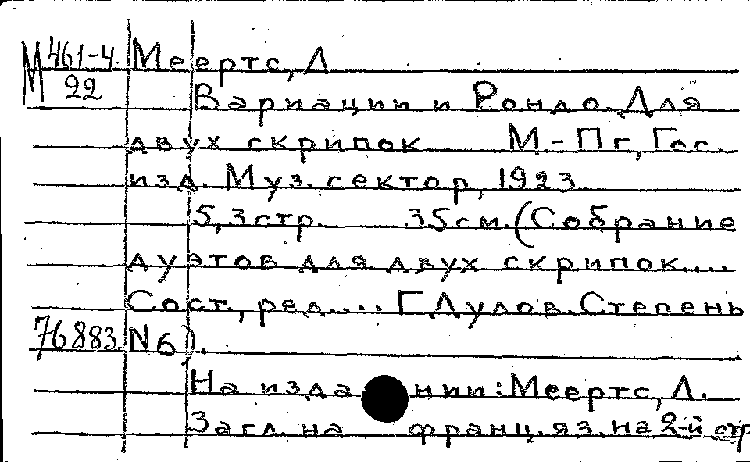 М 461-4 Меертс, Л
22 Вариации и Рондо. Для
двух скрипок М.-Пг, Гос.
изд. Муз. сектор, 1923
5, 3 стр. 35 см. (Собрание
дуэтов для двух скрипок....
Сост., ред.... Г. Дулов. Степень
76883 N 6).
На издании: Меертс, Л.
Загл. на франц. яз. на 2-й стр